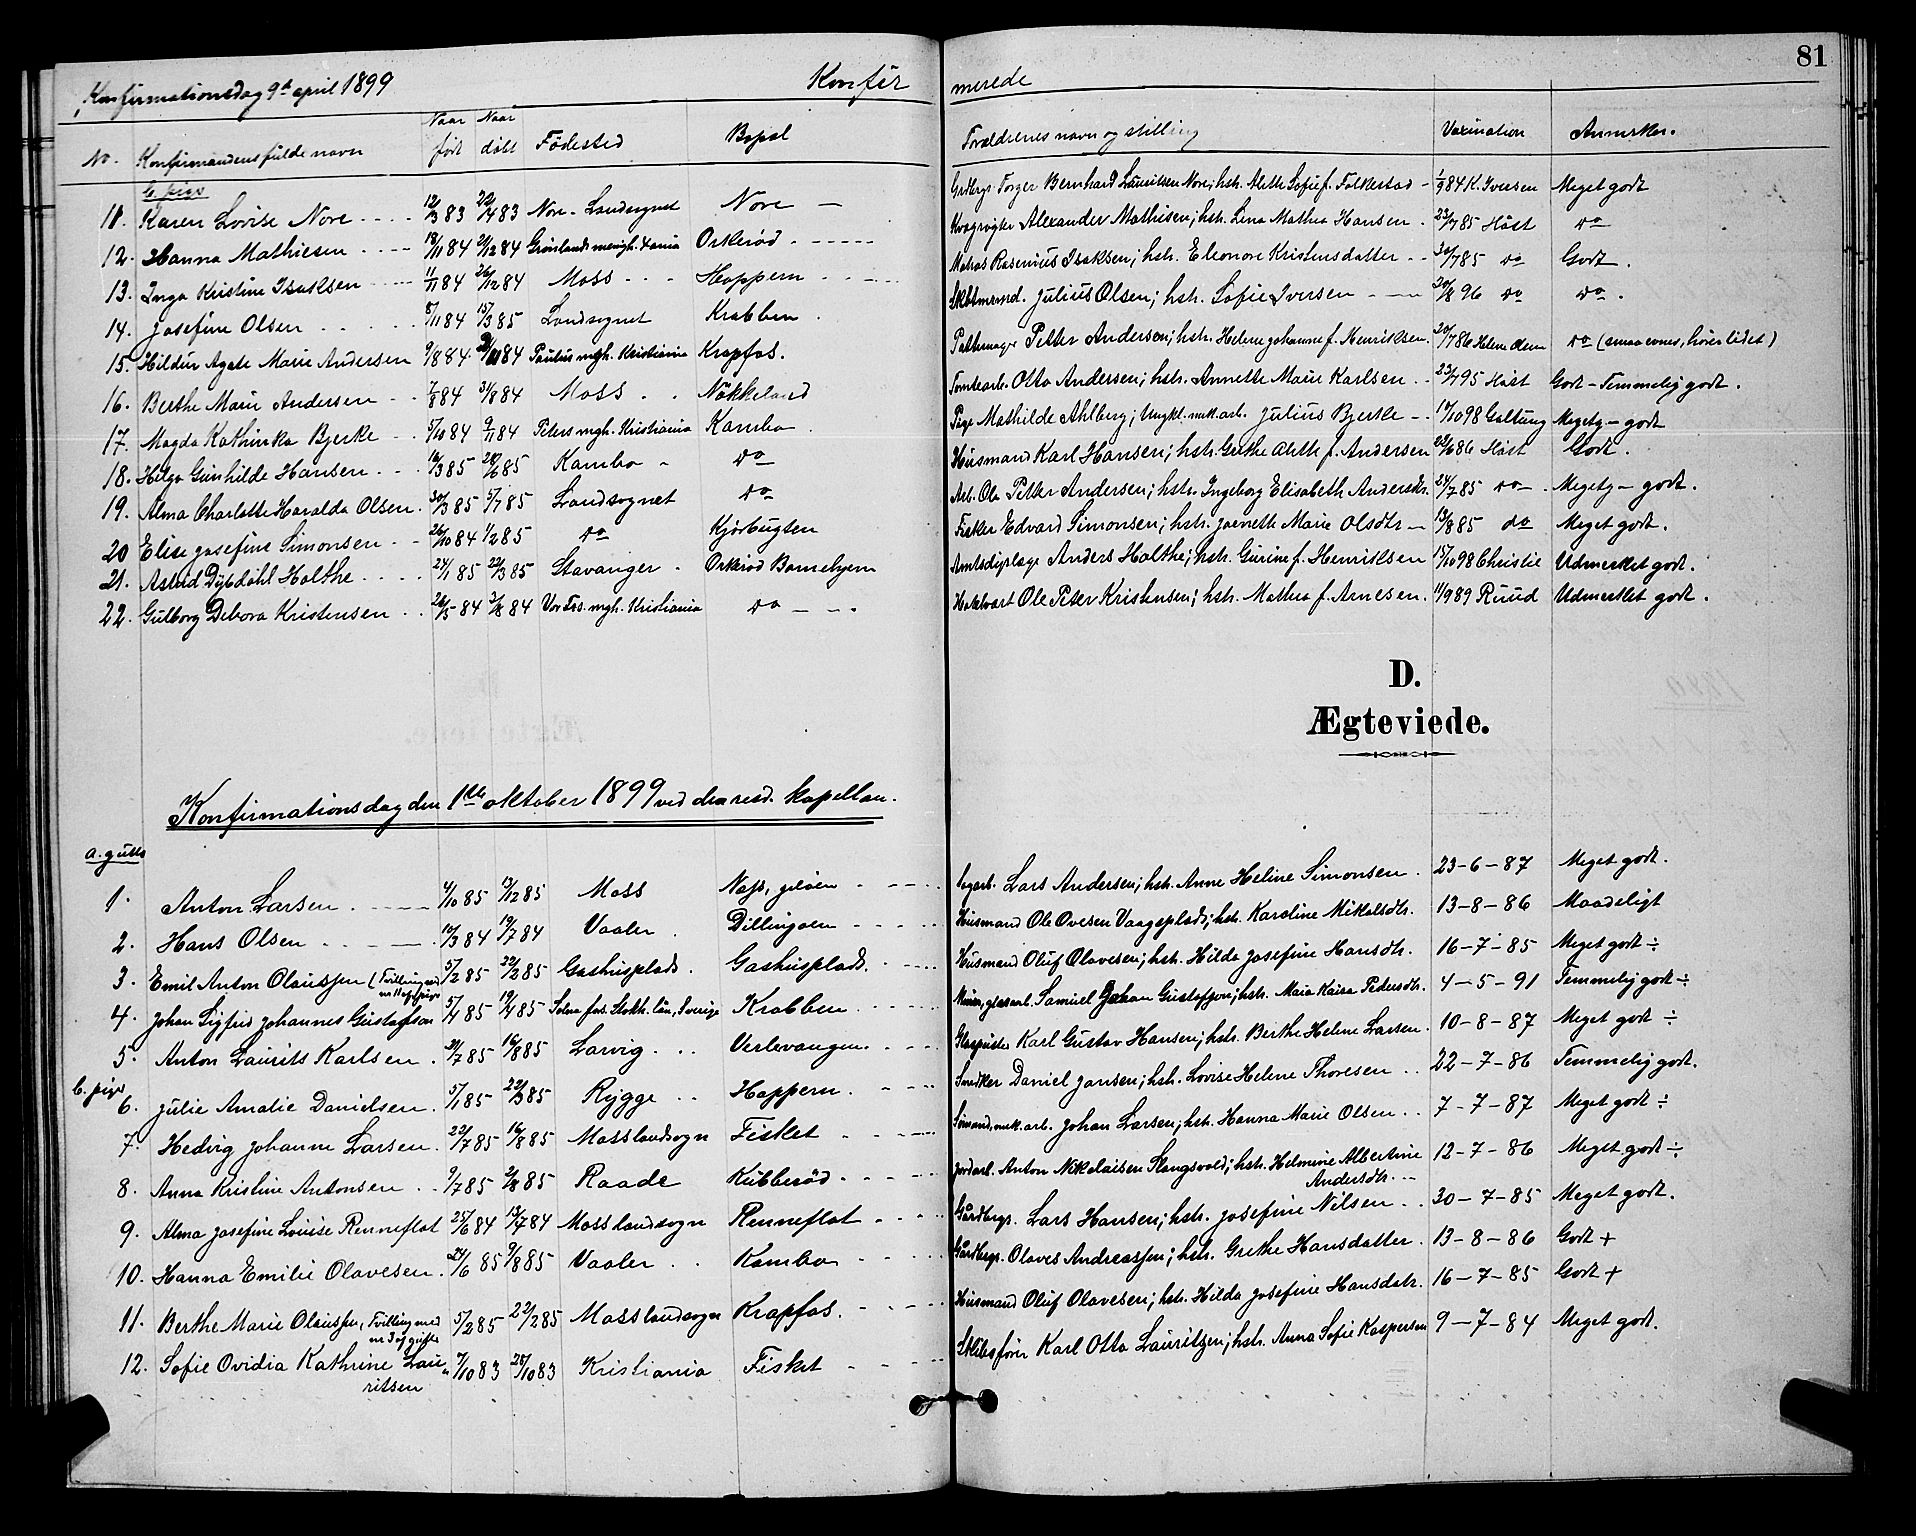 81
Konfirmationsdag 9de april 1899 Konfir merede
No. Konfirmandens fulde navn Naar født Naar døbt Fødested Bopæl Forældrenes navn og stilling Vaxination Anmerkn.
b. piger
11. Karen Lovise Nore 12/3 83 22/4 83 Nore - Landsognet Nore Grdbrgr Torger Bernhard Lauritsen Nore; hstr. Alette Sofie f. Folkestad 1/9 84 K. Iversen Meget godt
12. Hanna Mathiesen 18/11 84 21/12 84 Grønlands menigh. Xania Orkerød Alexander Mathisen; hstr. Lina Mathea Hansen 23/7 85 Høst do
13. Inga Kristine Isaksen 11/11 84 26/12 84 Moss Hoppern Matros Rasmus Isaksen; hstr. Eleonore Kristensdatter 30/7 85 do Godt.
14. Josefine Olsen 8/11 84 15/3 85 Landsognet Krabben Julius Olsen; hstr. Sofie Iversen 20/8 96 do do.
15. Hildur Agate Marie Andersen 9/8 84 84 Paulus mgh. Kristiania Krapfos. Petter Andersen; hstr. Helene Johanne f. Henriksen. 20/7 86 Helene Olsen do (smaa evner, hører lidet)
16. Berthe Marie Andersen 7/8 84 31/8 84 Moss Nøkkeland Tomtearb. Otto Andersen; hstr. Annette Marie Karlsen 23/7 95 Høst Godt - Temmelig godt.
17. Magda Kathinka Bjerke 5/10 84 9/11 84 Peters mgh. Kristiania Kambo Pige Mathilde Ahlberg; Ungkl. mek. arb. Julius Bjerke 17/10 98 Galtung Megetg - godt
18. Helga Gunhilde Hansen 16/3 85 28/6 85 Kambo do Husmand Karl Hansen; hstr. Grethe Alette f. Andersen 22/6 86 Høst Godt.
19. Alma Charlotte Haralda Olsen 30/3 85 5/7 85 Landsognet do Arb. Ole Petter Andersen; hstr. Ingeborg Elisabeth Andersdr. 24/7 85 do Megetg - godt.
20 Elise Josefine Simonsen 26/10 84 1/2 85 do Kjørbugten Fisker Edvard Simonsen; hstr. Jaenette Marie Olsdtr 13/8 85 do Meget godt.
21. Astrid Dybdahl Holthe 24/1 85 22/3 85 Stavanger Orkerød Barnehjem Amtsdyrlæge Anders Holthe; hstr. Gurine f. Henriksen 15/10 98 Christie Udmerket godt.
22. Gulborg Debora Kristensen 26/5 84 3/8 84 Vor Frs. mgh. Kristiania do Ole Peter Kristensen; hstr. Mathea f. Arnesen. 11/9 89 Ruud Udmerket godt.
D.
Ægteviede.
Konfirmationsdag den 1ste oktober 1899 ved den resid. kapellan.
a. gutter
1. Anton Larsen 4/10 85 13/12 85 Moss Nøss, Jeløen Lars Andersen; hstr. Anne Heline Simonsen 23-6-87 Meget godt.
2. Hans Olsen 10/3 84 19/7 84 Vaaler Dillingøen Husmand Ole Ovesen Vaagsplads; hstr. Karoline Mikalsdtr. 13-8-86 Maadeligt
3. Emil Anton Olaussen (Tvilling med nr 11 af piger 5/2 85 22/2 85 Gashusplads. Gashusplads. Husmand Oluf Olavesen; hstr. Hilda Josefine Hansdtr. 16-7-85 Meget godt ÷
4. Johan Sigfrid Johannes Gustafson 5/4 85 19/4 85 Solna fors. Stokh. län, Sverige Krabben Samuel Johan Gustafson; hstr. Maia Kaisa Pedersdtr. 4-5-91 Temmelig godt ÷
5. Anton Laurits Karlsen 31/7 85 16/8 85 Larvig Verlevangen Glaspuster Karl Gustav Hansen; hstr. Berthe Helene Larsen 10-8-87 Meget godt ÷
b. piger
6. Julie Amalie Danielsen 5/1 85 22/3 85 Rygge Hoppern Snedker Daniel Jansen; hstr. Lovise Helene Thoresen 22-7-86 Temmelig godt.
7. Hedvig Johanne Larsen 22/7 85 16/8 85 Moss landsogn Fisket Sømand, mek. arb. Johan Larsen; hstr. Hanna Marie Olsen 7-7-87 Meget godt ÷
8. Anna Kristine Antonsen 9/7 85 2/8 85 Raade Kubberød Jordarb. Anton Nikolaisen Slangsvold; hstr. Helmine Albertine Andersdtr. 12-7-86 Meget godt ÷
9. Alma Josefine Louise Renneflot 25/6 84 13/7 84 Moss landsogn Renneflot Gårdbrgr. Lars Hansen; hstr. Josefine Nilsen 30-7-85 Meget godt.
10. Hanna Emilie Olavesen 24/6 85 9/8 85 Vaaler Kambo Gårdbrgr. Olaves Andreassen; hstr. Grethe Hansdatter 13-8-86 Godt +
11. Berthe Marie Olaussen, Tvilling med nr 3 af gutter 5/2 85 22/2 85 Moss landsogn Krapfos. Husmand Oluf Olavesen; hstr. Hilda Josefine Hansdatr. 16-7-85 Godt +
12. Sofie Ovidia Kathrine Lauritsen 7/10 83 28/10 83 Kristiania Fisket Skibsfører Karl Otto Lauritzen; hstr. Anna Sofie Kaspersen 9-7-84 Meget godt.